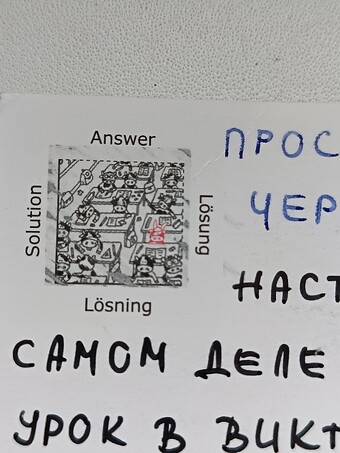 Answer
Solution
Lösung
Lösning
ПРОС
ЧЕР
НАСТ
САМОМ ДЕЛЕ
УРОК В ВИКТ